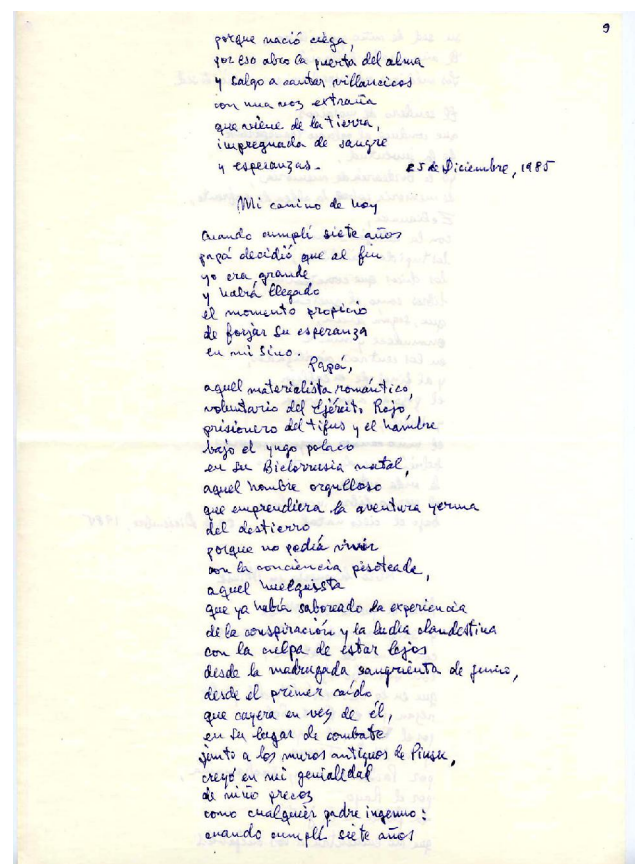 9
porque nació ciega,
por eso abro la puerta del alma
y salgo a cantar villancicos
con una voz extraña
que viene de la tierra,
impregnada de sangre
y esperanzas.
25 de Diciembre, 1985
Mi camino de hoy
Cuando cumplí siete años
papá decidió que al fin
yo era grande
y habrá llegado
el momento propicio
de forjar su esperanza
en mi sino.
Papá,
aquel materialista romántico,
voluntario del Ejército Rojo,
prisionero del tifus y el hambre
bajo el yugo polaco
en su Bielorrusia natal,
aquel hombre orgulloso
que emprendiera la aventura yerma
del destierro
porque no podía vivir
con la conciencia pisoteada,
aquel huelguista
que ya había saboreado la experiencia
de la conspiración y la lucha clandestina
con la culpa de estar lejos
desde la madrugada sangrienta de junio,
desde el primer caído
que cayera en vez de él,
en su lugar de combate
junto a los muros antiguos de Pinsk,
creyó en mi genialidad
de niño precoz
como cualquier padre ingenuo:
cuando cumplí siete años